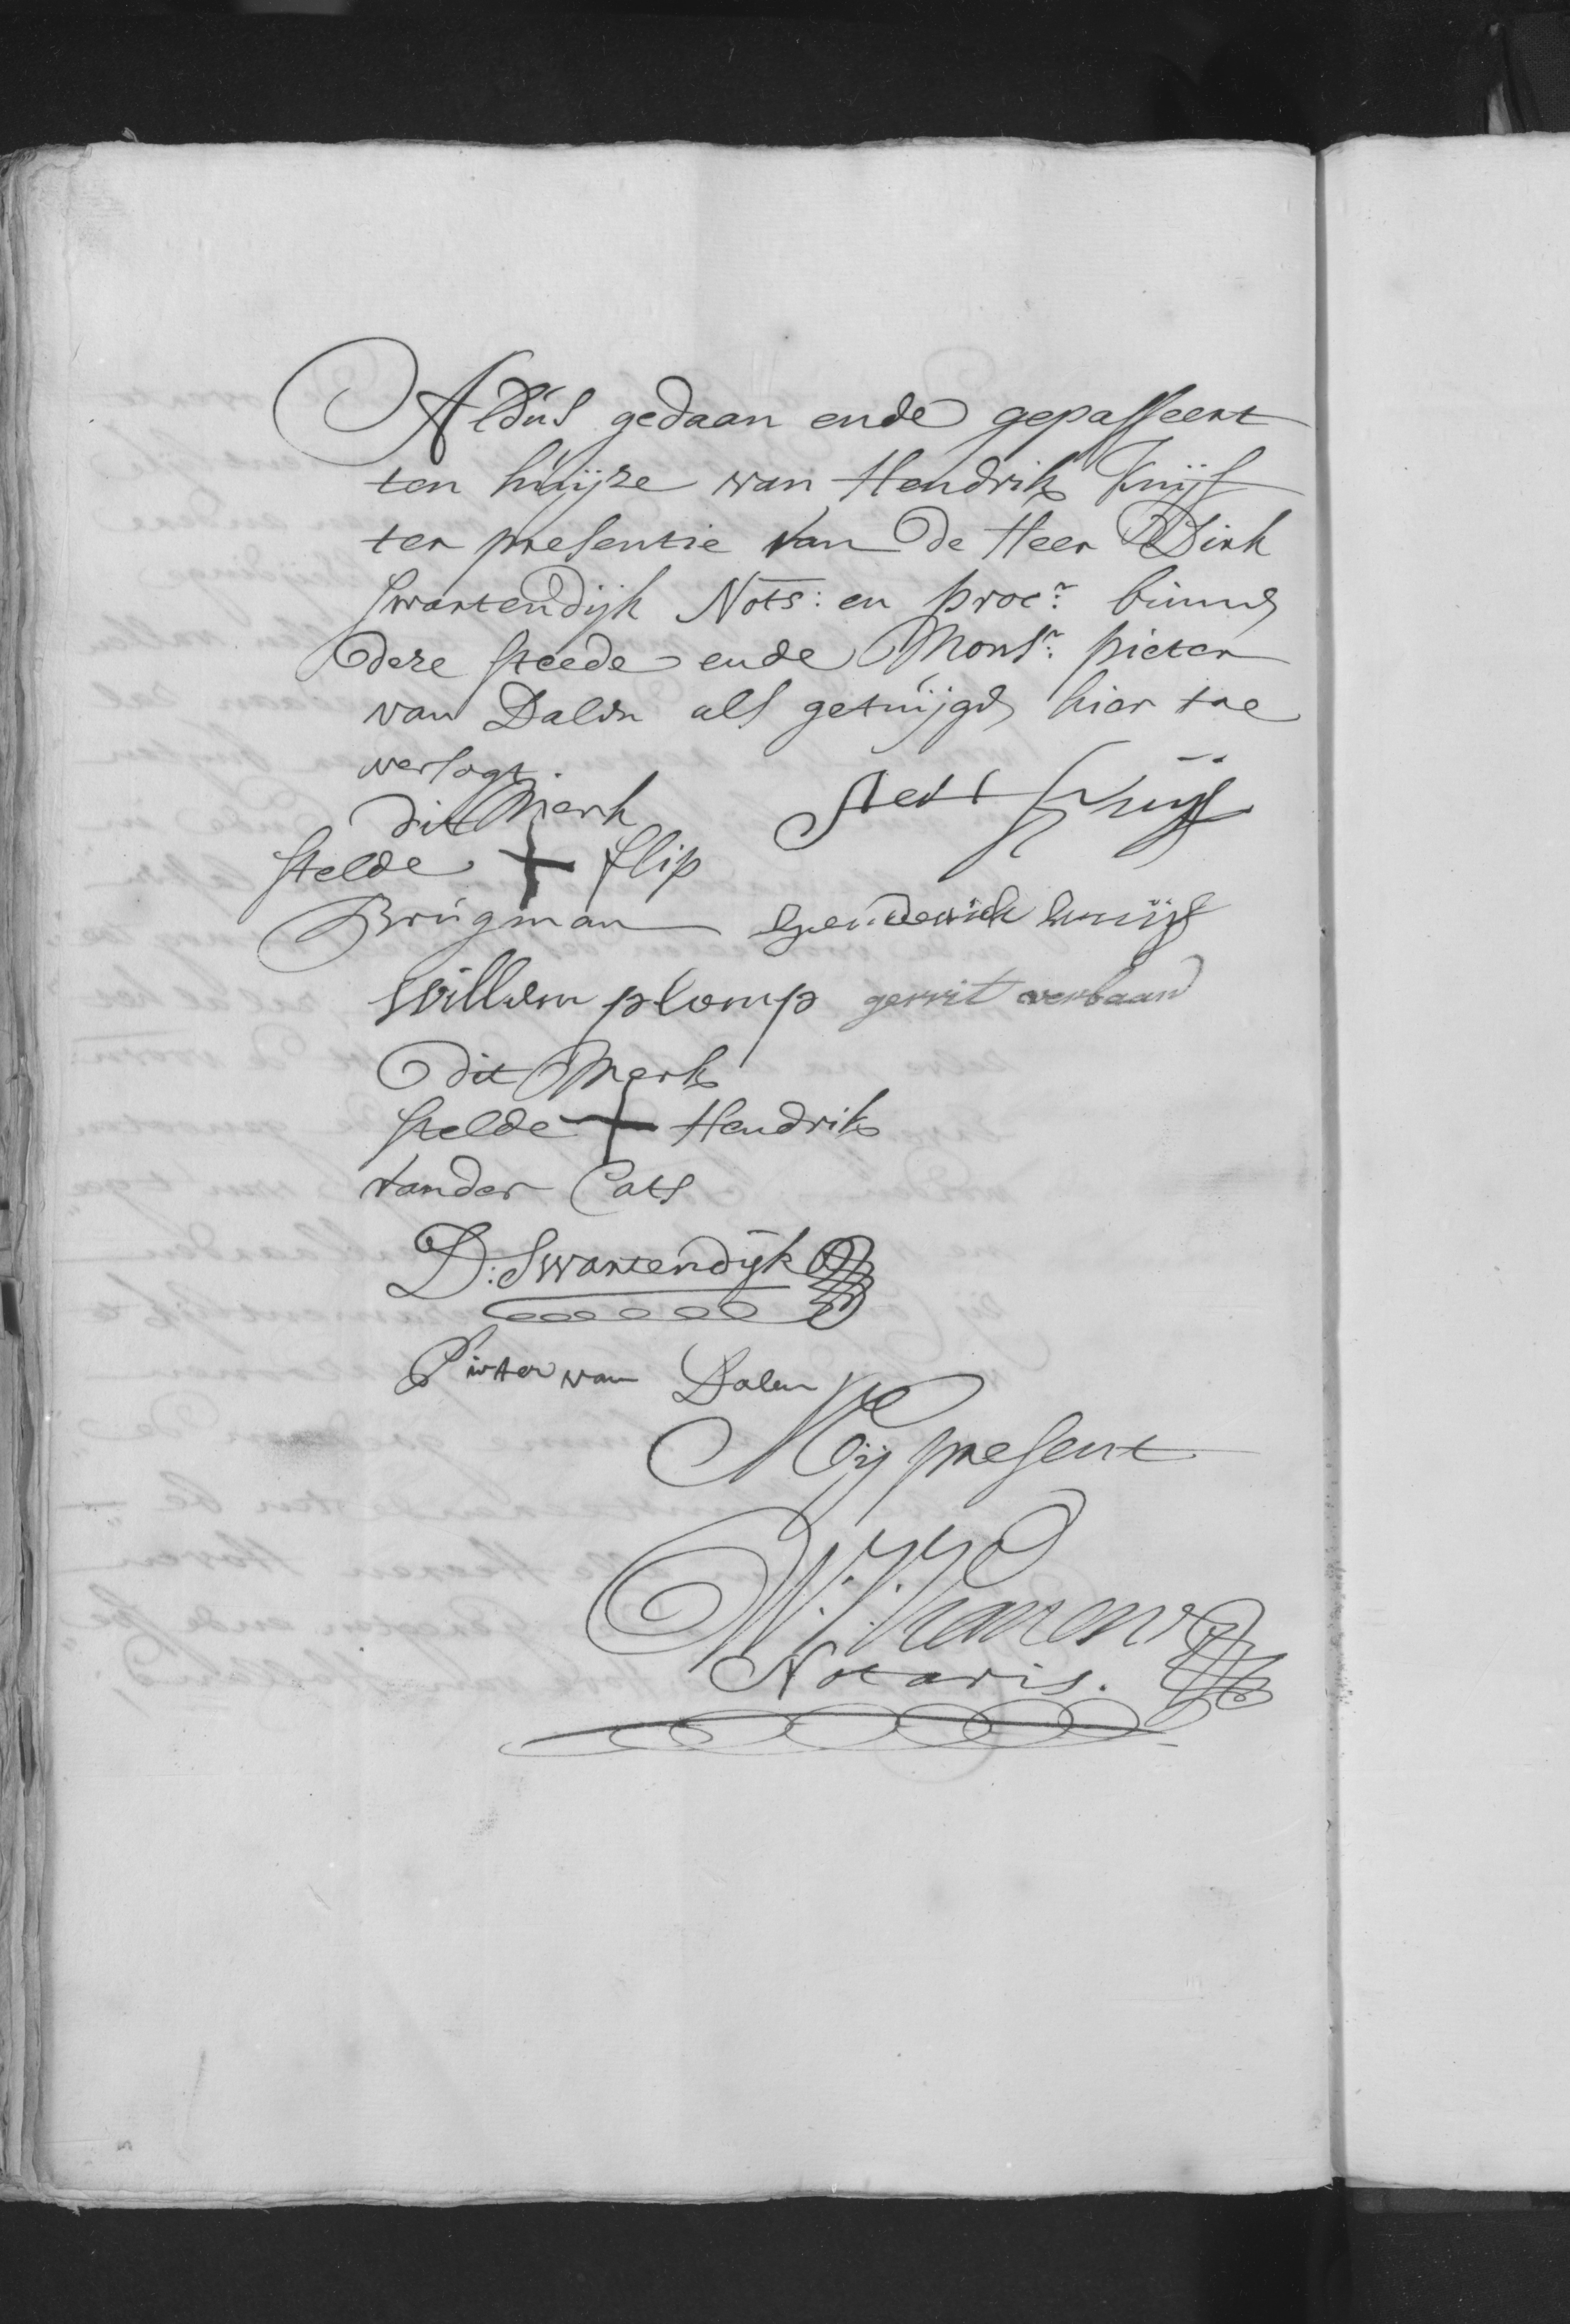 Aldus gedaan ende gepasseert
ten huijze van Hendrik Knijf
ter presentie van de Heer Dirk
Swartendijk Nots: en procr: binnen
deze steede ende Monsr: pieter
van Dalen als getuijgen hier toe
versogt.
dit Merk
stelde + flip
Brugman
henderick knuijf
willem plomp gerrit verbaan
Dit Merk
stelde + Hendrik
vander Cats
D: Swartendijk
Pieter van Dalen
Mij present
Notaris.